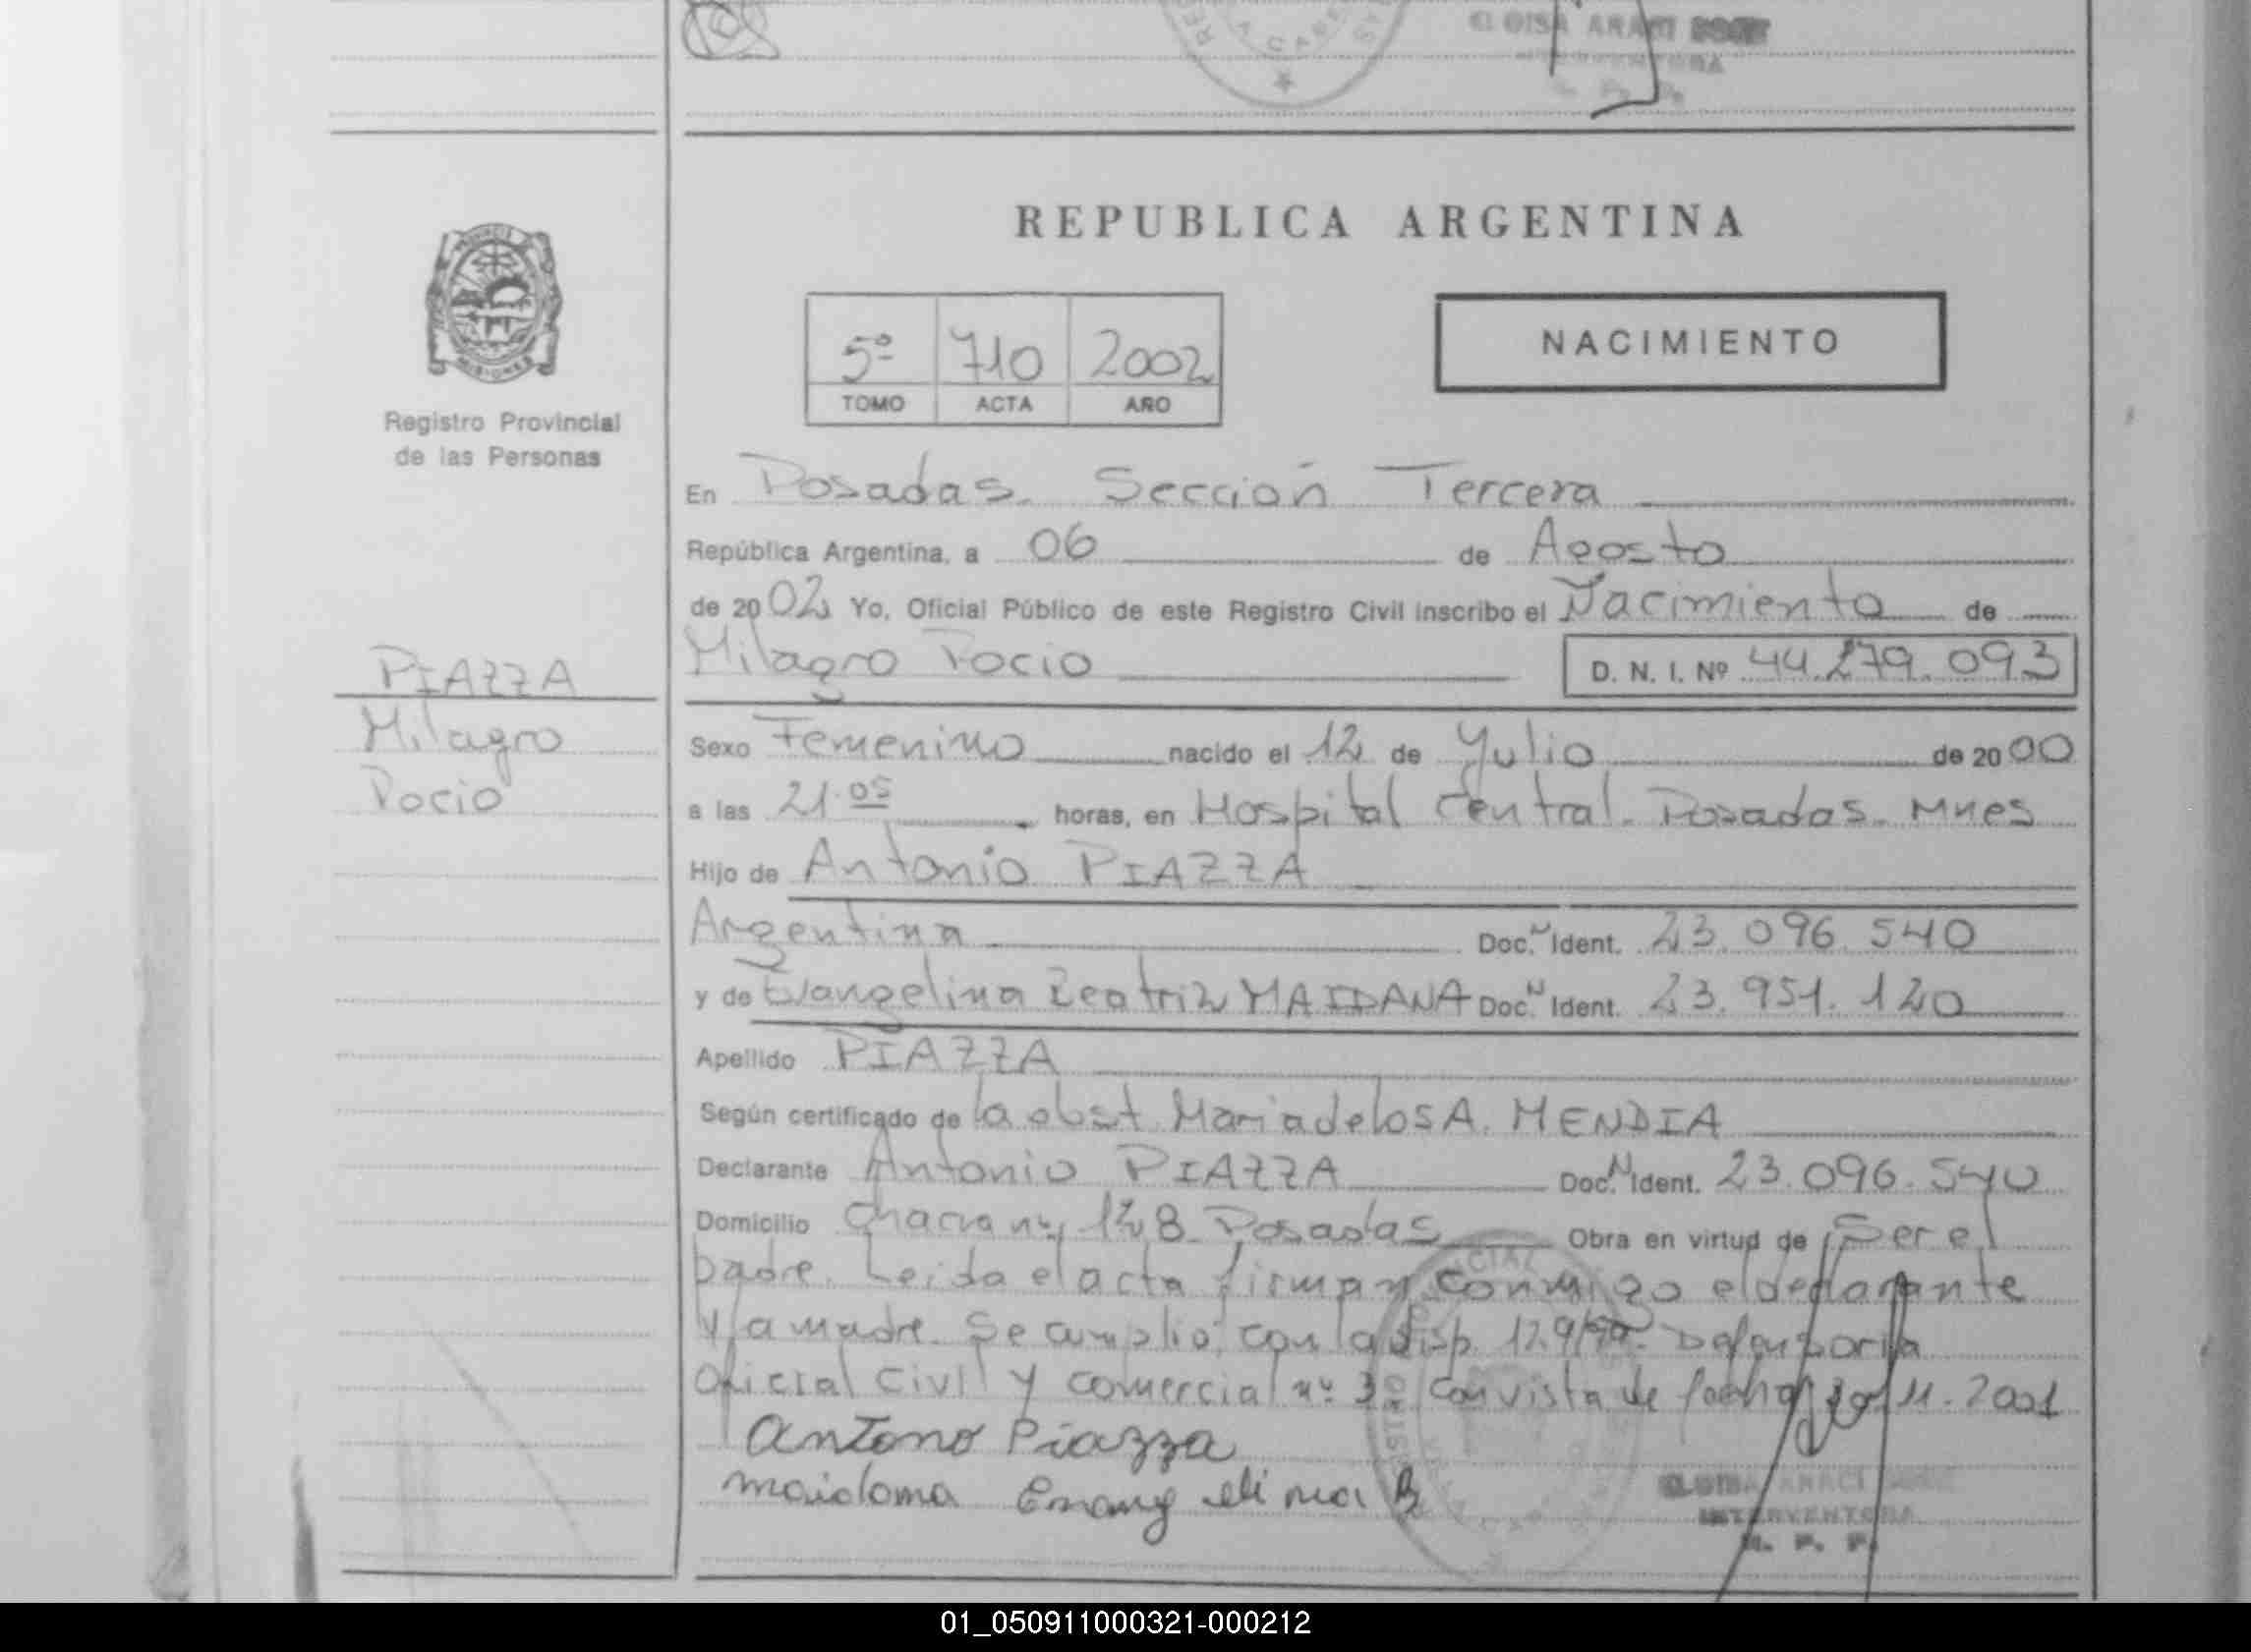 ELOISA ARACI
INTERVENTORA
REPUBLICA ARGENTINA
PROVINCIA
MISIONES
Registro Provincial
de las Personas
5º 710 2002
TOMO ACTA AÑO
NACIMIENTO
En Posadas. Sección Tercera
República Argentina, a 06 de Agosto
de 2002 Yo, Oficial Público de este Registro Civil inscribo el Nacimiento de
Milagro Rocio D. N. I. Nº 44.279.093
PIAZZA
Milagro
Rocio
Sexo Femenino nacido el 12 de Yulio de 2000
a las 21.05 horas, en Hospital Central. Posadas. Mnes
Hijo de Antonio PIAZZA
Argentina Doc. N Ident. 23.096.540
y de Evangelina Beatriz MAIDANA Doc. N Ident. 23.951.120
Apellido PIAZZA
Según certificado de la obst Maria de los A. MENDIA
Declarante Antonio PIAZZA Doc. N Ident. 23.096.540
Domicilio Chacra nº 128 Posadas Obra en virtud de Ser el
padre. Leida el acta firman conmigo el declarante
y la madre. Se cumplió con la disp. 129/ Defensoria
Oficial Civil y Comercial nº 3 con vista de fecha 11.2001
Antono Piazza
maidana Evangelina B
ELOISA ARACI
INTERVENTORA
R. P. P.
01_050911000321-000212